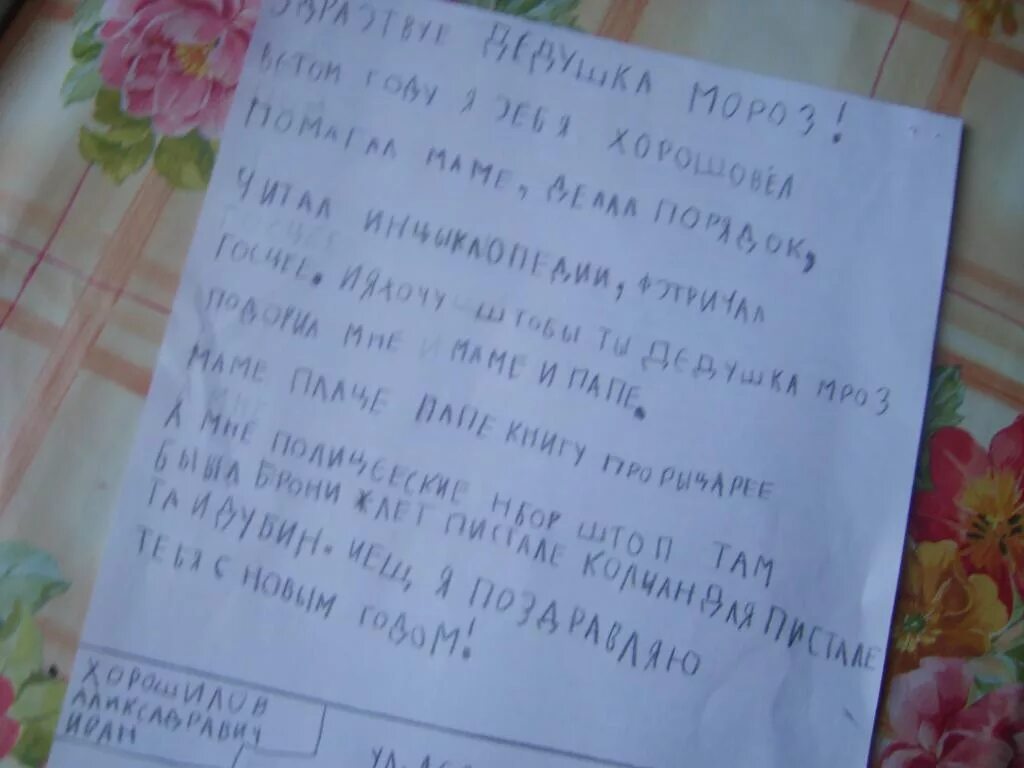 ЗДРАЗТВУЕ ДЕДУШКА МОРОЗ!
ВЕТОМ ГОДУ Я ЗЕБЯ ХОРОШОВЁЛ
ПОМАГАЛ МАМЕ, ДЕЛАЛ ПОРЯДОК,
ЧИТАЛ ИНЦЫКЛОПЕДИИ, ФЭТРИЧАЛ
ГОСЦЕЕ. ИЯХОЧУ ШТОБЫ ТЫ ДЕДУШКА МРОЗ
ПОДОРИЛ МНЕ И МАМЕ И ПАПЕ.
МАМЕ ПЛАЦЕ ПАПЕ КНИГУ ПРОРЫЦАРЕЕ
А МНЕ ПОЛИЦЕЕСКИЕ НБОР ШТОП ТАМ
БЫЛА БРОНИ ЖЛЕТ ПИСТАЛЕ КОЛЧАН ДЛЯ ПИСТАЛЕ
ТА И ДУБИН. ИЕЩ Я ПОЗДРАВЛЯЮ
ТЕБЯ С НОВЫМ ГОДОМ!
ХОРОШИЛОВ
АЛИКСАДРАВИЧ
ИВАН
УЛ.